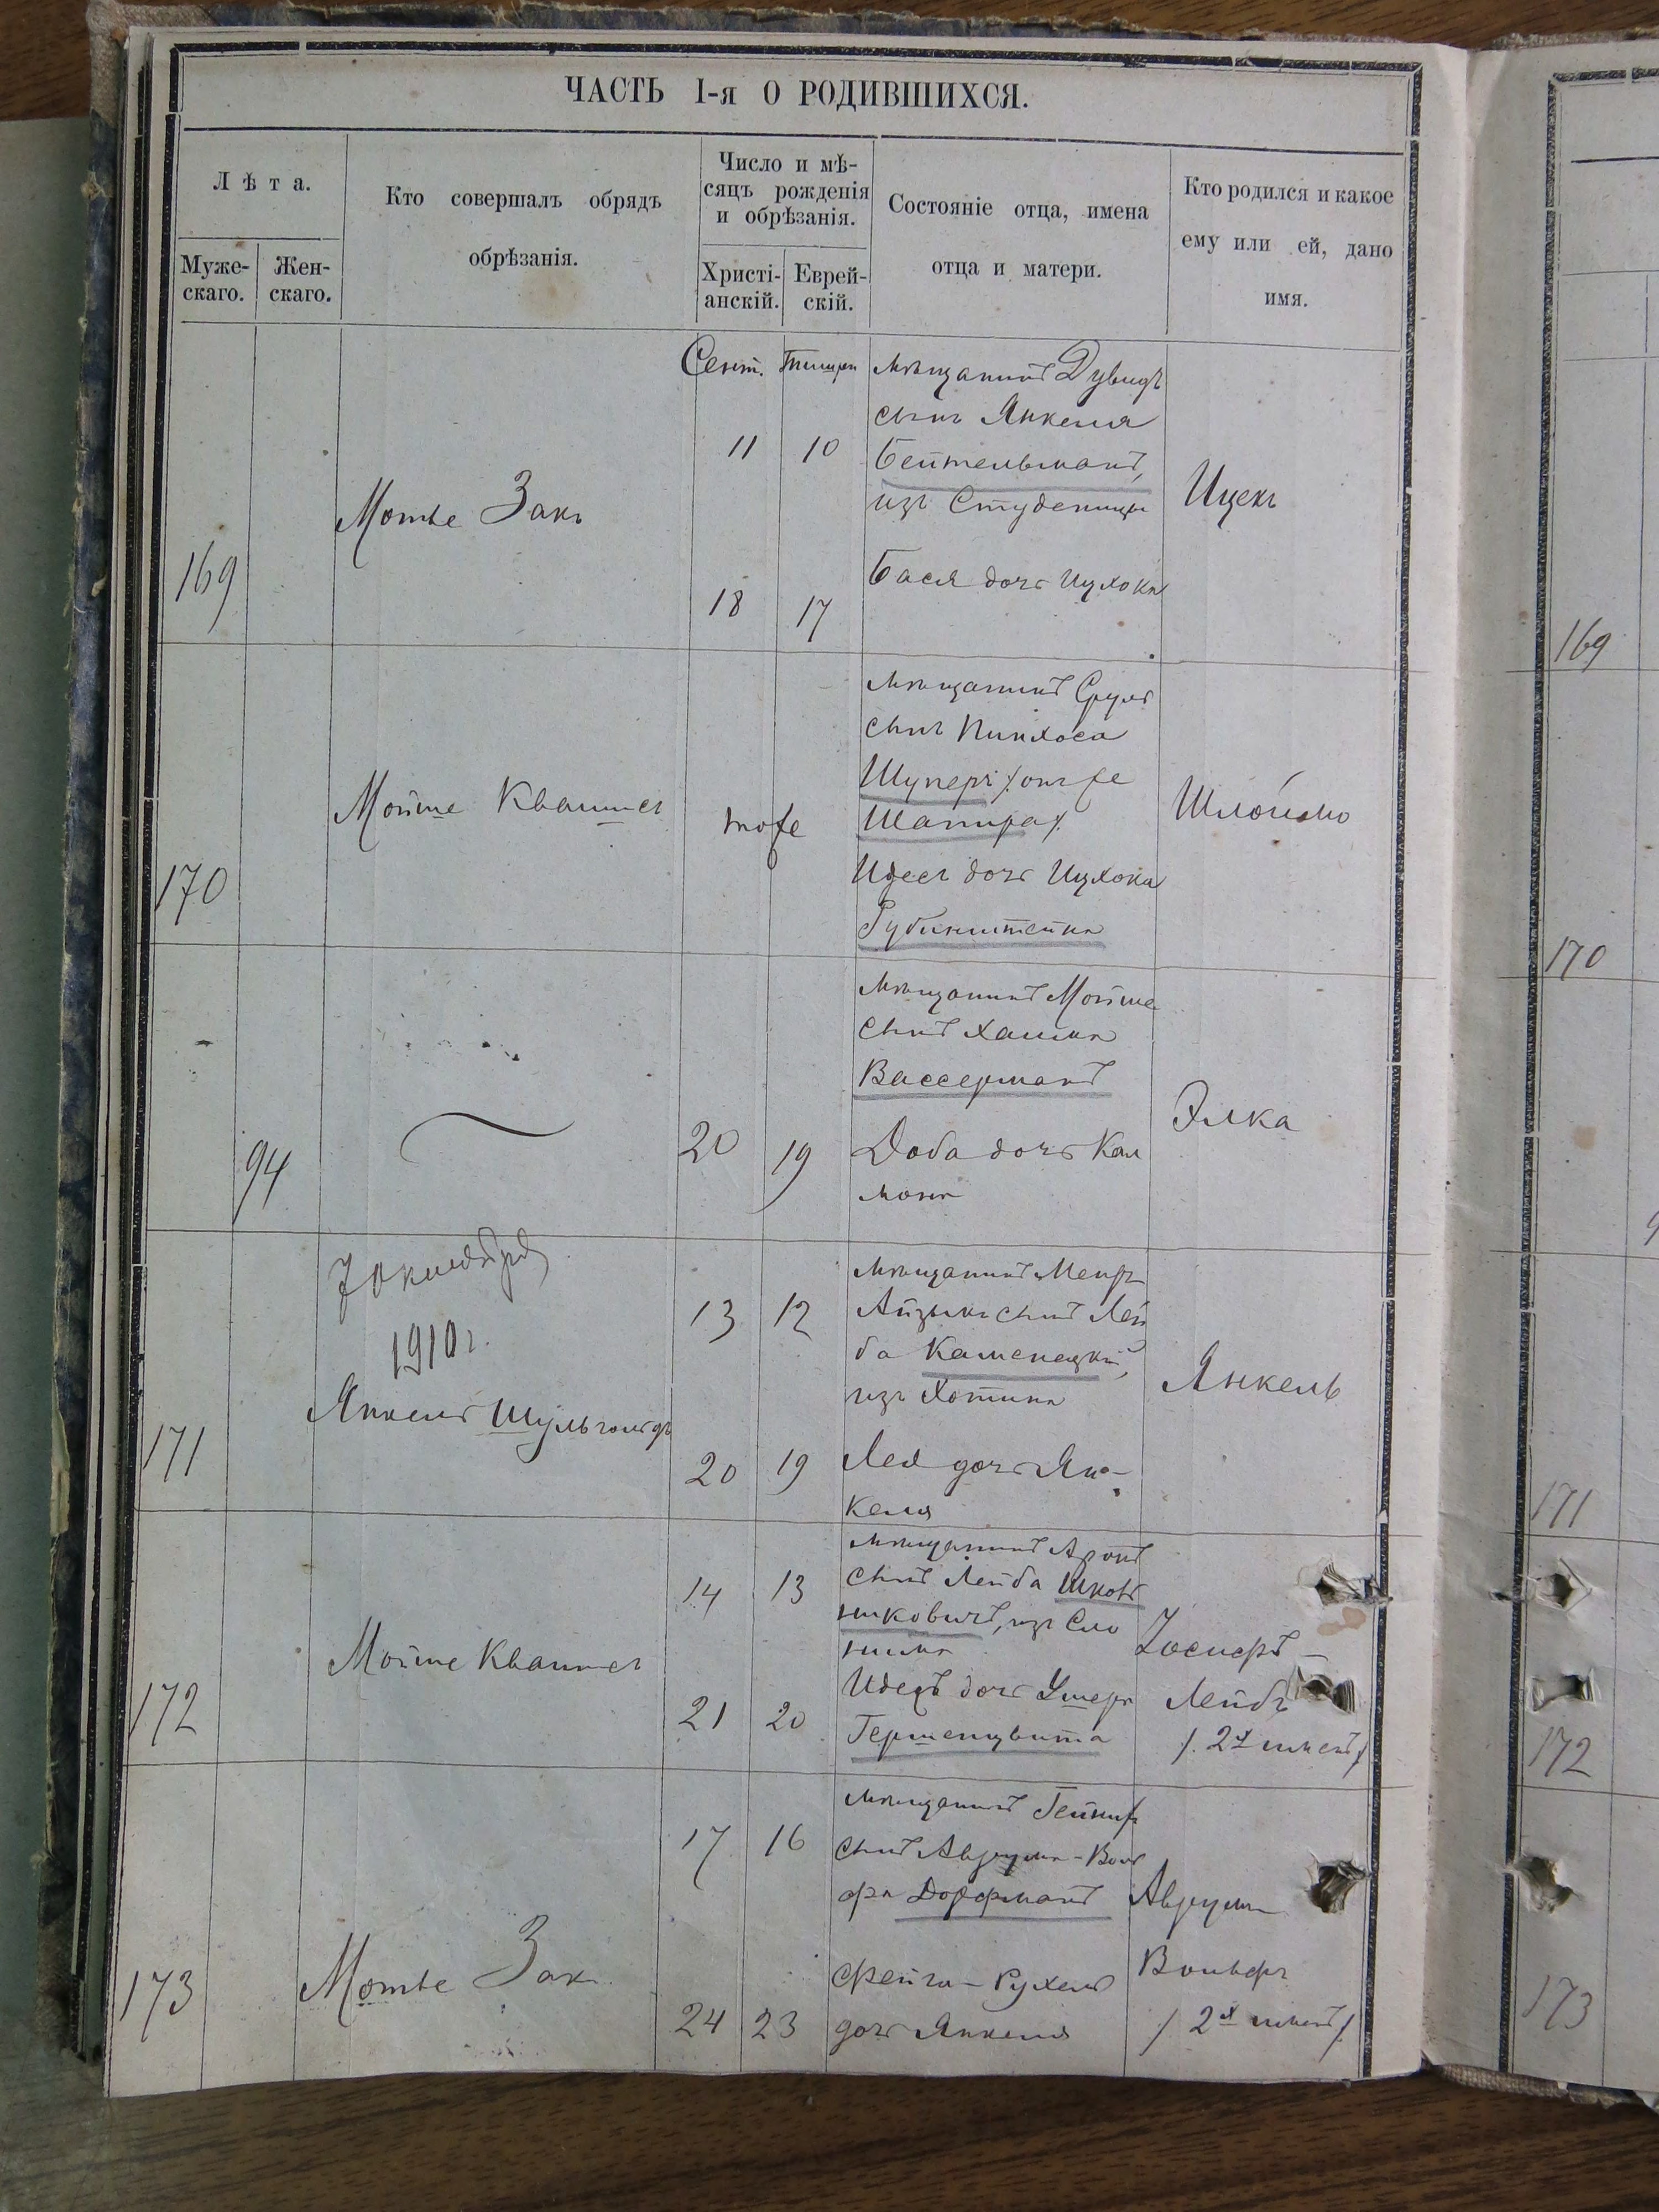 ЧАСТЬ I-я О РОДИВШИХСЯ.
Лѣта.
Муже-
скаго.
Жен-
скаго.
Кто совершалъ обрядъ
обрѣзанія.
Число и мѣ-
сяцъ рожденія
и обрѣзанія.
Христі-
анскій.
Еврей-
скій.
Состояніе отца, имена
отца и матери.
Кто родился и какое
ему или ей, дано
имя.
169
Мотье Закъ
Сент. Тишри
11 10
18 17
мѣщанинъ Дувидъ
сынъ Янкеля
Бейтельманъ,
изъ Студеницы
Бася дочь Ицхока
Ицекъ
169
170
Мойше Квашнет
тоже
мѣщанинъ Сруль
сынъ Пинхоса
Шуперъ /онъ же
Шапира/
Идесъ дочь Ицхока
Рубинштейна
Шлоймо
170
94
20 19
мѣщанинъ Мойше
сынъ Хаима
Вассерманъ
Доба дочь Кал
мона
Элка
171
7 октября
1910 г.
Янкель Шульгольдъ
13 12
20 19
мѣщанинъ Меиръ
Айзыкъ сынъ Лей
ба Каменецкій,
изъ Хотина
Лея дочь Ян-
келя
Янкель
171
172
Мойше Квашнет
14 13
21 20
мѣщанинъ Аронъ
сынъ Лейба Школь
никовичъ, изъ Сло
нима
Идесъ дочь Ушера
Гершенцвита
Іосифъ-
Лейбъ
/2х именъ/
172
173
Мотье Зак
17 16
24 23
мѣщанинъ
сынъ Аврума-Воль
фа Дорфманъ
Фейга-Рухель
дочь Янкеля
Аврумъ
Вольфъ
/2х именъ/
173